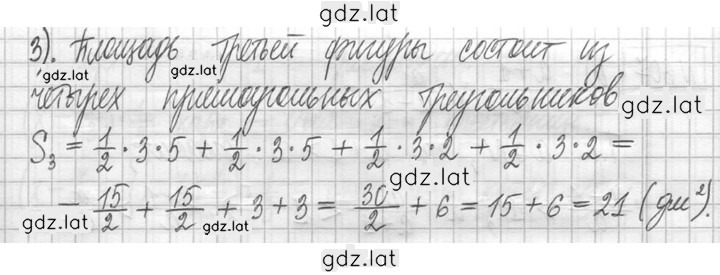 gdz.lat
3). Площадь третьей фигуры состоит из
gdz.lat gdz.lat
четырех прямоугольных треугольников
gdz.lat
S₃ = 1/2 · 3 · 5 + 1/2 · 3 · 5 + 1/2 · 3 · 2 + 1/2 · 3 · 2 =
gdz.lat
= 15/2 + 15/2 + 3 + 3 = 30/2 + 6 = 15 + 6 = 21 (дм²).
gdz.lat gdz.lat
gdz.lat